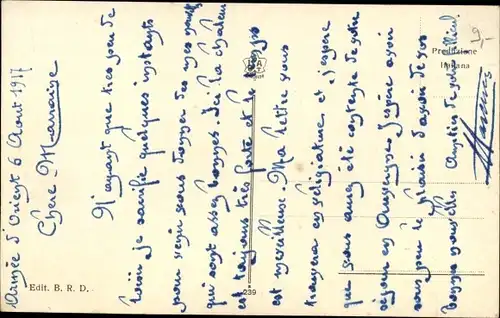 Armée d'Orient 6 Août 1917
Chère Marraine
N'ayant que très peu de
loisir je sacrifie quelques instants
pour venir vous donner de mes nouvelles
qui sont assez bonnes. Ici la chaleur
est toujours très forte et le temps
est merveilleux. Ma lettre vous
trouvera en villégiature et j'espère
que vous aurez été contente de votre
séjour en Auvergne. J'espère avoir
sous peu le plaisir d'avoir de vos
bonnes nouvelles.
de votre filleul
9,-
Produzione
Italiana
Edit. B. R. D.
239